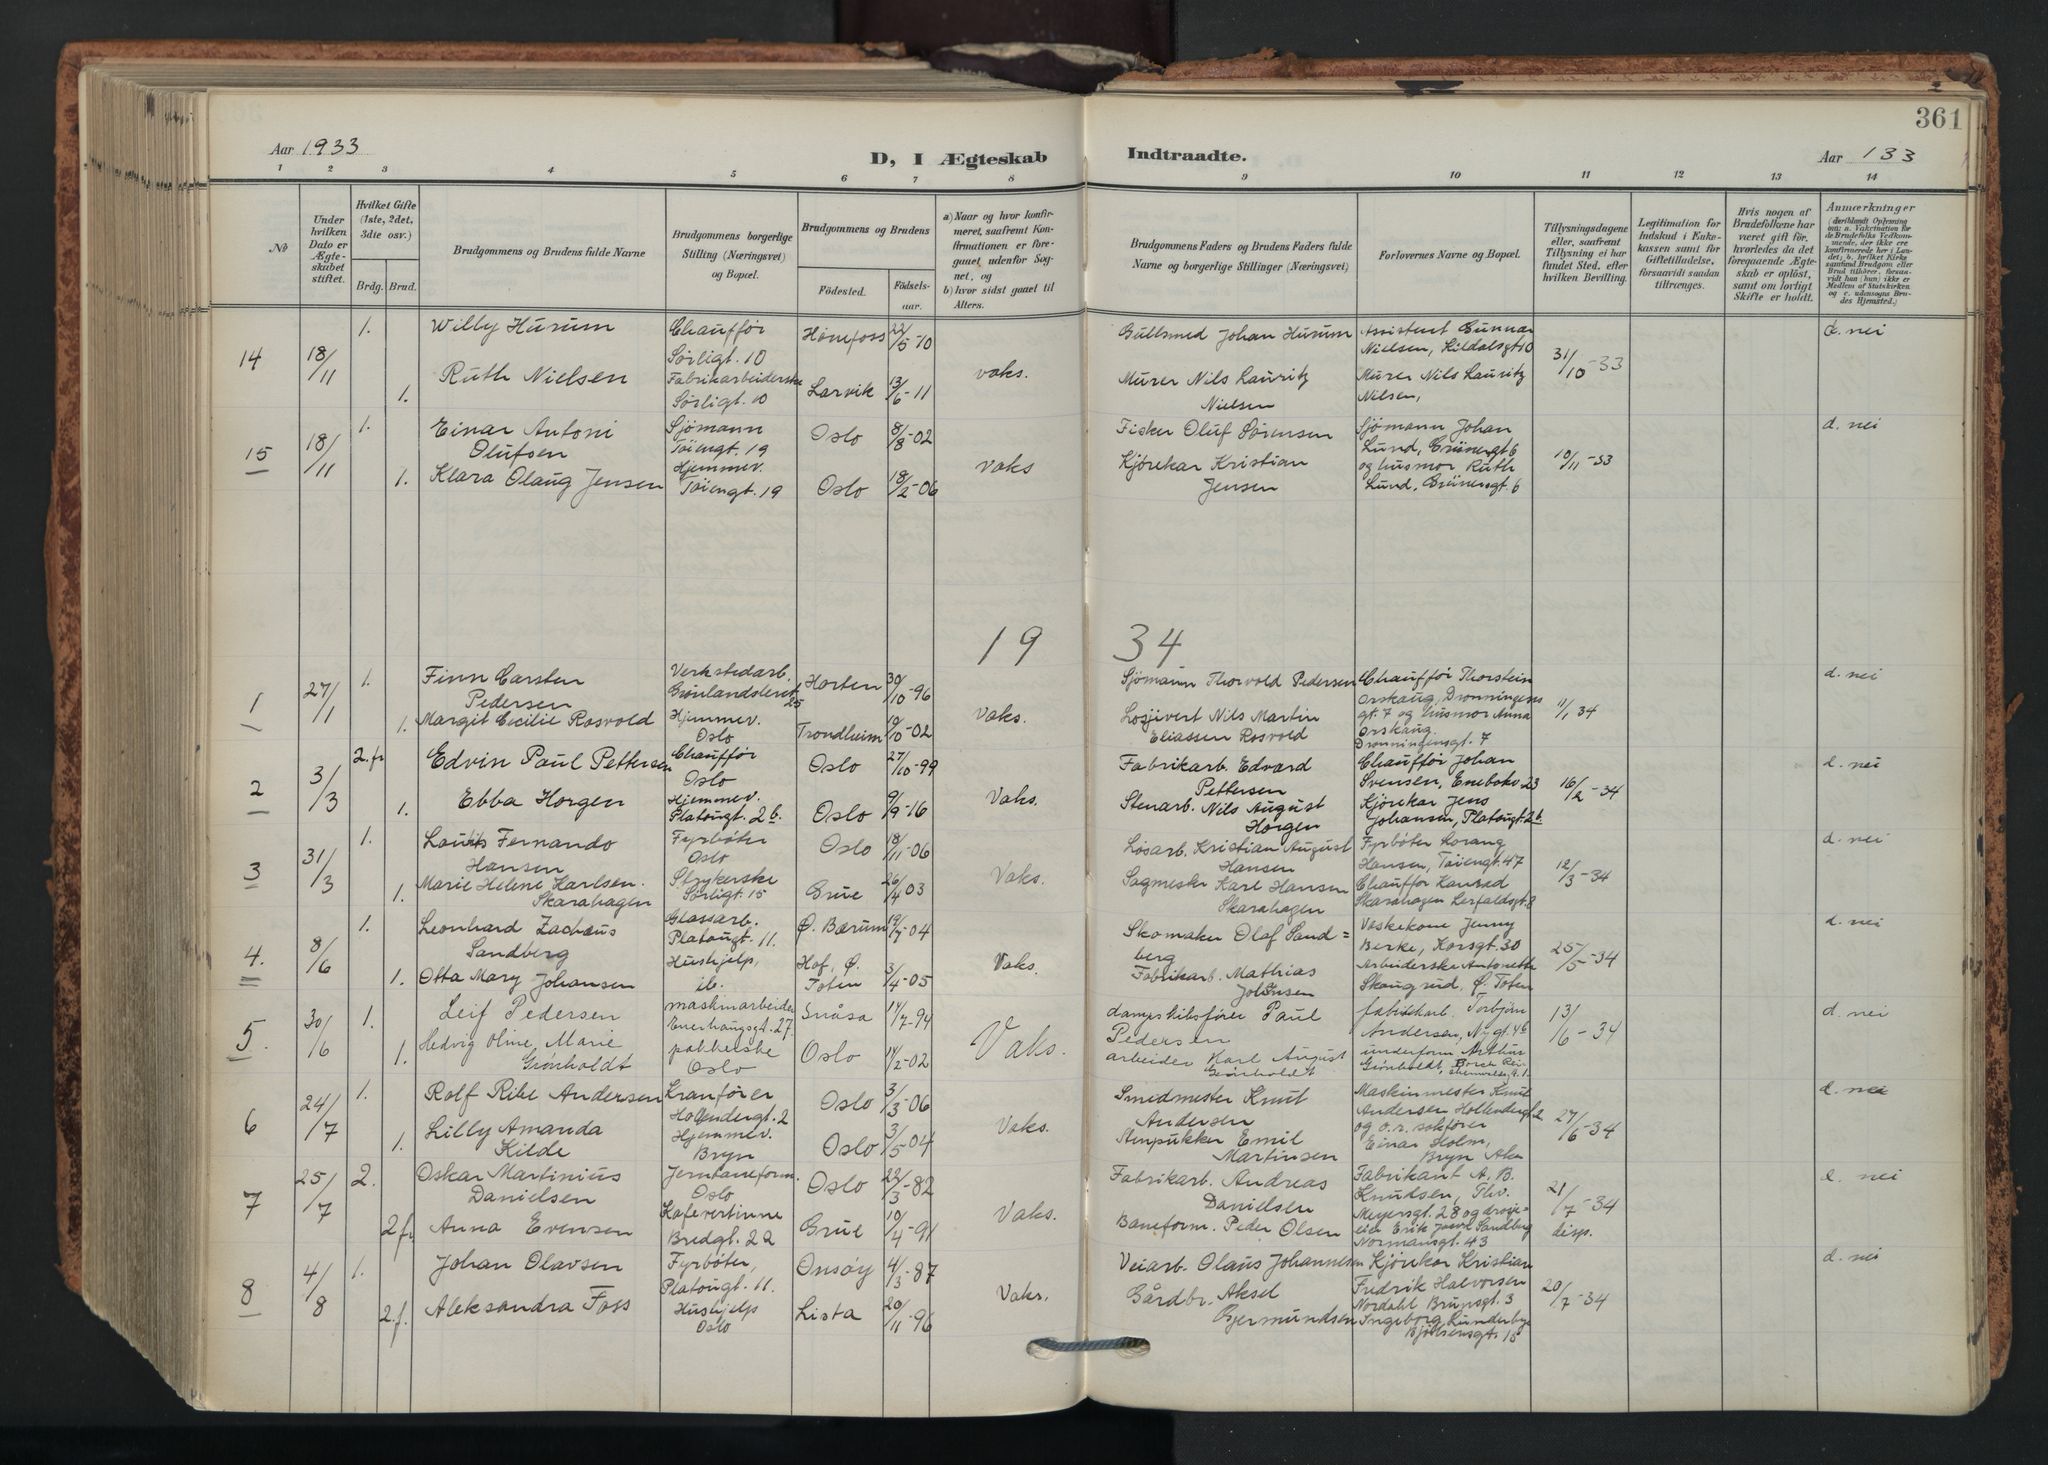 361
Aar 1933
D, I Ægteskab
Indtraadte.
Aar 133
1 2 3 4 5 6 7 8 9 10 11 12 13 14
№
Under hvilken Dato er Ægteskabet stiftet.
Hvilket Gifte (1ste, 2det, 3die osv.)
Brdg. Brud.
Brudgommens og Brudens fulde Navne
Brudgommens borgerlige Stilling (Næringsvei) og Bopæl.
Brudgommens og Brudens
Fødested. Fødselsaar.
a) Naar og hvor konfirmeret, saafremt Konfirmationen er foregaaet udenfor Sognet, og
b) hvor sidst gaaet til Alters.
Brudgommens Faders og Brudens Faders fulde Navne og borgerlige Stillinger (Næringsvei)
Forlovernes Navne og Bopæl.
Tillysningsdagene eller, saafremt Tillysning ei har fundet Sted, efter hvilken Bevilling.
Legitimation for Indskud i Enkekassen samt for Giftetilladelse, forsaavidt saadan tiltrænges.
Hvis nogen af Brudefolkene har været gift før, hvorledes da det foregaaende Ægteskab er opløst, samt om lovligt Skifte er holdt.
Anmærkninger
(deriblandt Oplysning om: a. Vaccination for de Brudefolks Vedkommende, der ikke ere konfirmerede her i Landet; b. hvilket Kirkesamfund Brudgom eller Brud tilhører, forsaavidt han (hun) ikke er Medlem af Statskirken og c. udensogns Brudes Hjemsted.)
14 18/11 1. Willy Hurum Chauffør Sørligt. 10 Hønefoss 22/5-10 Gullsmed Johan Hurum Assistent Gunnar Nielsen, Kildalsgt 10 31/10-33 d. nei
1. Ruth Nielsen Fabrikarbeiderske Sørligt. 10 Larvik 13/6-11 vaks. Murer Nils Lauritz Nielsen Murer Nils Lauritz Nilsen,
15 18/11 1. Einar Antoni Olufsen Sjømann Tøiengt. 19 Oslo 8/8-02 Fisker Oluf Sørensen Sjømann Johan Lund, Grünergt 6 10/11-33 d. nei
1. Klara Olaug Jensen Hjemmev. Tøiengt. 19 Oslo 18/2-06 Vaks Kjørekar Kristian Jensen og husmor Ruth Lund, Grünersgt. 6
19 34
1 27/1 1. Finn Carsten Pedersen Verkstedarb. Grønlandsleret 25 Horten 30/10-96 Sjømann Thorvold Pedersen Chauffør Thorstein Orskaug, Dronningensgt. 7 og husmor Anna Orskaug. Dronningensgt. 7 11/1 34 d. nei
1. Margit Cecilie Rosvold Hjemmev. Oslo Trondheim 19/10-02 Vaks. Losjivert Nils Martin Eliassen Rosvold
2 3/3 2. fr Edvin Paul Pettersen Chauffør Oslo Oslo 27/10-99 Fabrikarb. Edvard Pettersen Chauffør Johan Svensen, Enebakv. 23 16/2-34 d. nei
1. Ebba Horgen Hjemmev. Platougt. 2b. Oslo 9/9-16 Vaks. Stenarb. Nils August Horgen Kjørekar Jens Johansen, Platougt. 2b
3 31/3 1. Laurits Fernando Hansen Fyrbøter Oslo Oslo 18/11-06 Løsarb. Kristian August Hansen Fyrbøter Lorang Hansen, Tøiengt. 47 12/3-34 d. nei
1. Marie Helene Karlsen. Skarahagen Strykerske Sørligt. 15 Grue 26/4 03 Vaks. Sagmester Karl Hansen Skarahagen Chauffør Konrad Skarahagen Lerfaldsgt. 8
4. 8/6 1. Leonhard Zachæus Sandberg Glassarb. Platougt. 11. Ø. Bærum 19/7-04 Skomaker Olaf Sandberg Vaskekone Jenny Berke, Korsgt. 30 25/5-34 d. nei
1. Otta Mary Johansen Hushjelp, ib. Hof, Ø. Toten 3/4-05 Vaks. Fabrikarb. Mathias Johansen Arbeiderske Antonette Skaugrud, Ø. Toten
5. 30/6 1. Leif Pedersen maskinarbeider Enerhaugsgt. 27 Snåsa 14/7-94 dampskibsfører Paul Pedersen fabrikkarb. Torbjørn Andersen, Nygt. 4b 13/6-34 d. nei
1. Hedvig Oline Marie Grønholdt pakkerske Oslo Oslo 14/2-02 Vaks. arbeider Karl August Grønholdt underform. Arthur Grønholdt,
6 24/7 1. Rolf Ribe Andersen Kranfører Hollendergt. 2 Oslo 3/3-06 Smedmester Knut Andersen Maskinmester Knut Andersen Hollendergt. 2 27/6-34 d. nei
1. Lilly Amanda Kilde Hjemmev. Bryn Oslo 3/5-04 Vaks. Stenpukker Emil Martinsen og o.r. sakfører Einar Holm, Bryn Aker
7 25/7 2. Oskar Martinius Danielsen Jernbaneform. Oslo Oslo 22/3-82 Fabrikarb. Andreas Danielsen Fabrikant A. B. Knudsen, Thv. Meyersgt. 28 og drosjeeier Erik Jacob Sandberg Normansgt. 43 21/7-34 disp. d. nei
2 fr Anna Evensen Kafevertinne Bredgt. 22 Grue 10/4-91 Vaks. Baneform. Peder Olsen
8 4/8 1. Johan Olavsen Fyrbøter, Platougt. 11. Onsøy 4/3-87 Veiarb. Olaus Johannesen Kjørekar Kristian Fredrik Halvorsen Nordahl Brunsgt. 3 20/7-34 d. nei
2. f. Aleksandra Foss Hushjelp Oslo Lista 20/11-96 Vaks. Gårdbr. Aksel Gjermundsen Ingeborg Lunderbye Bjølsensgt. 15